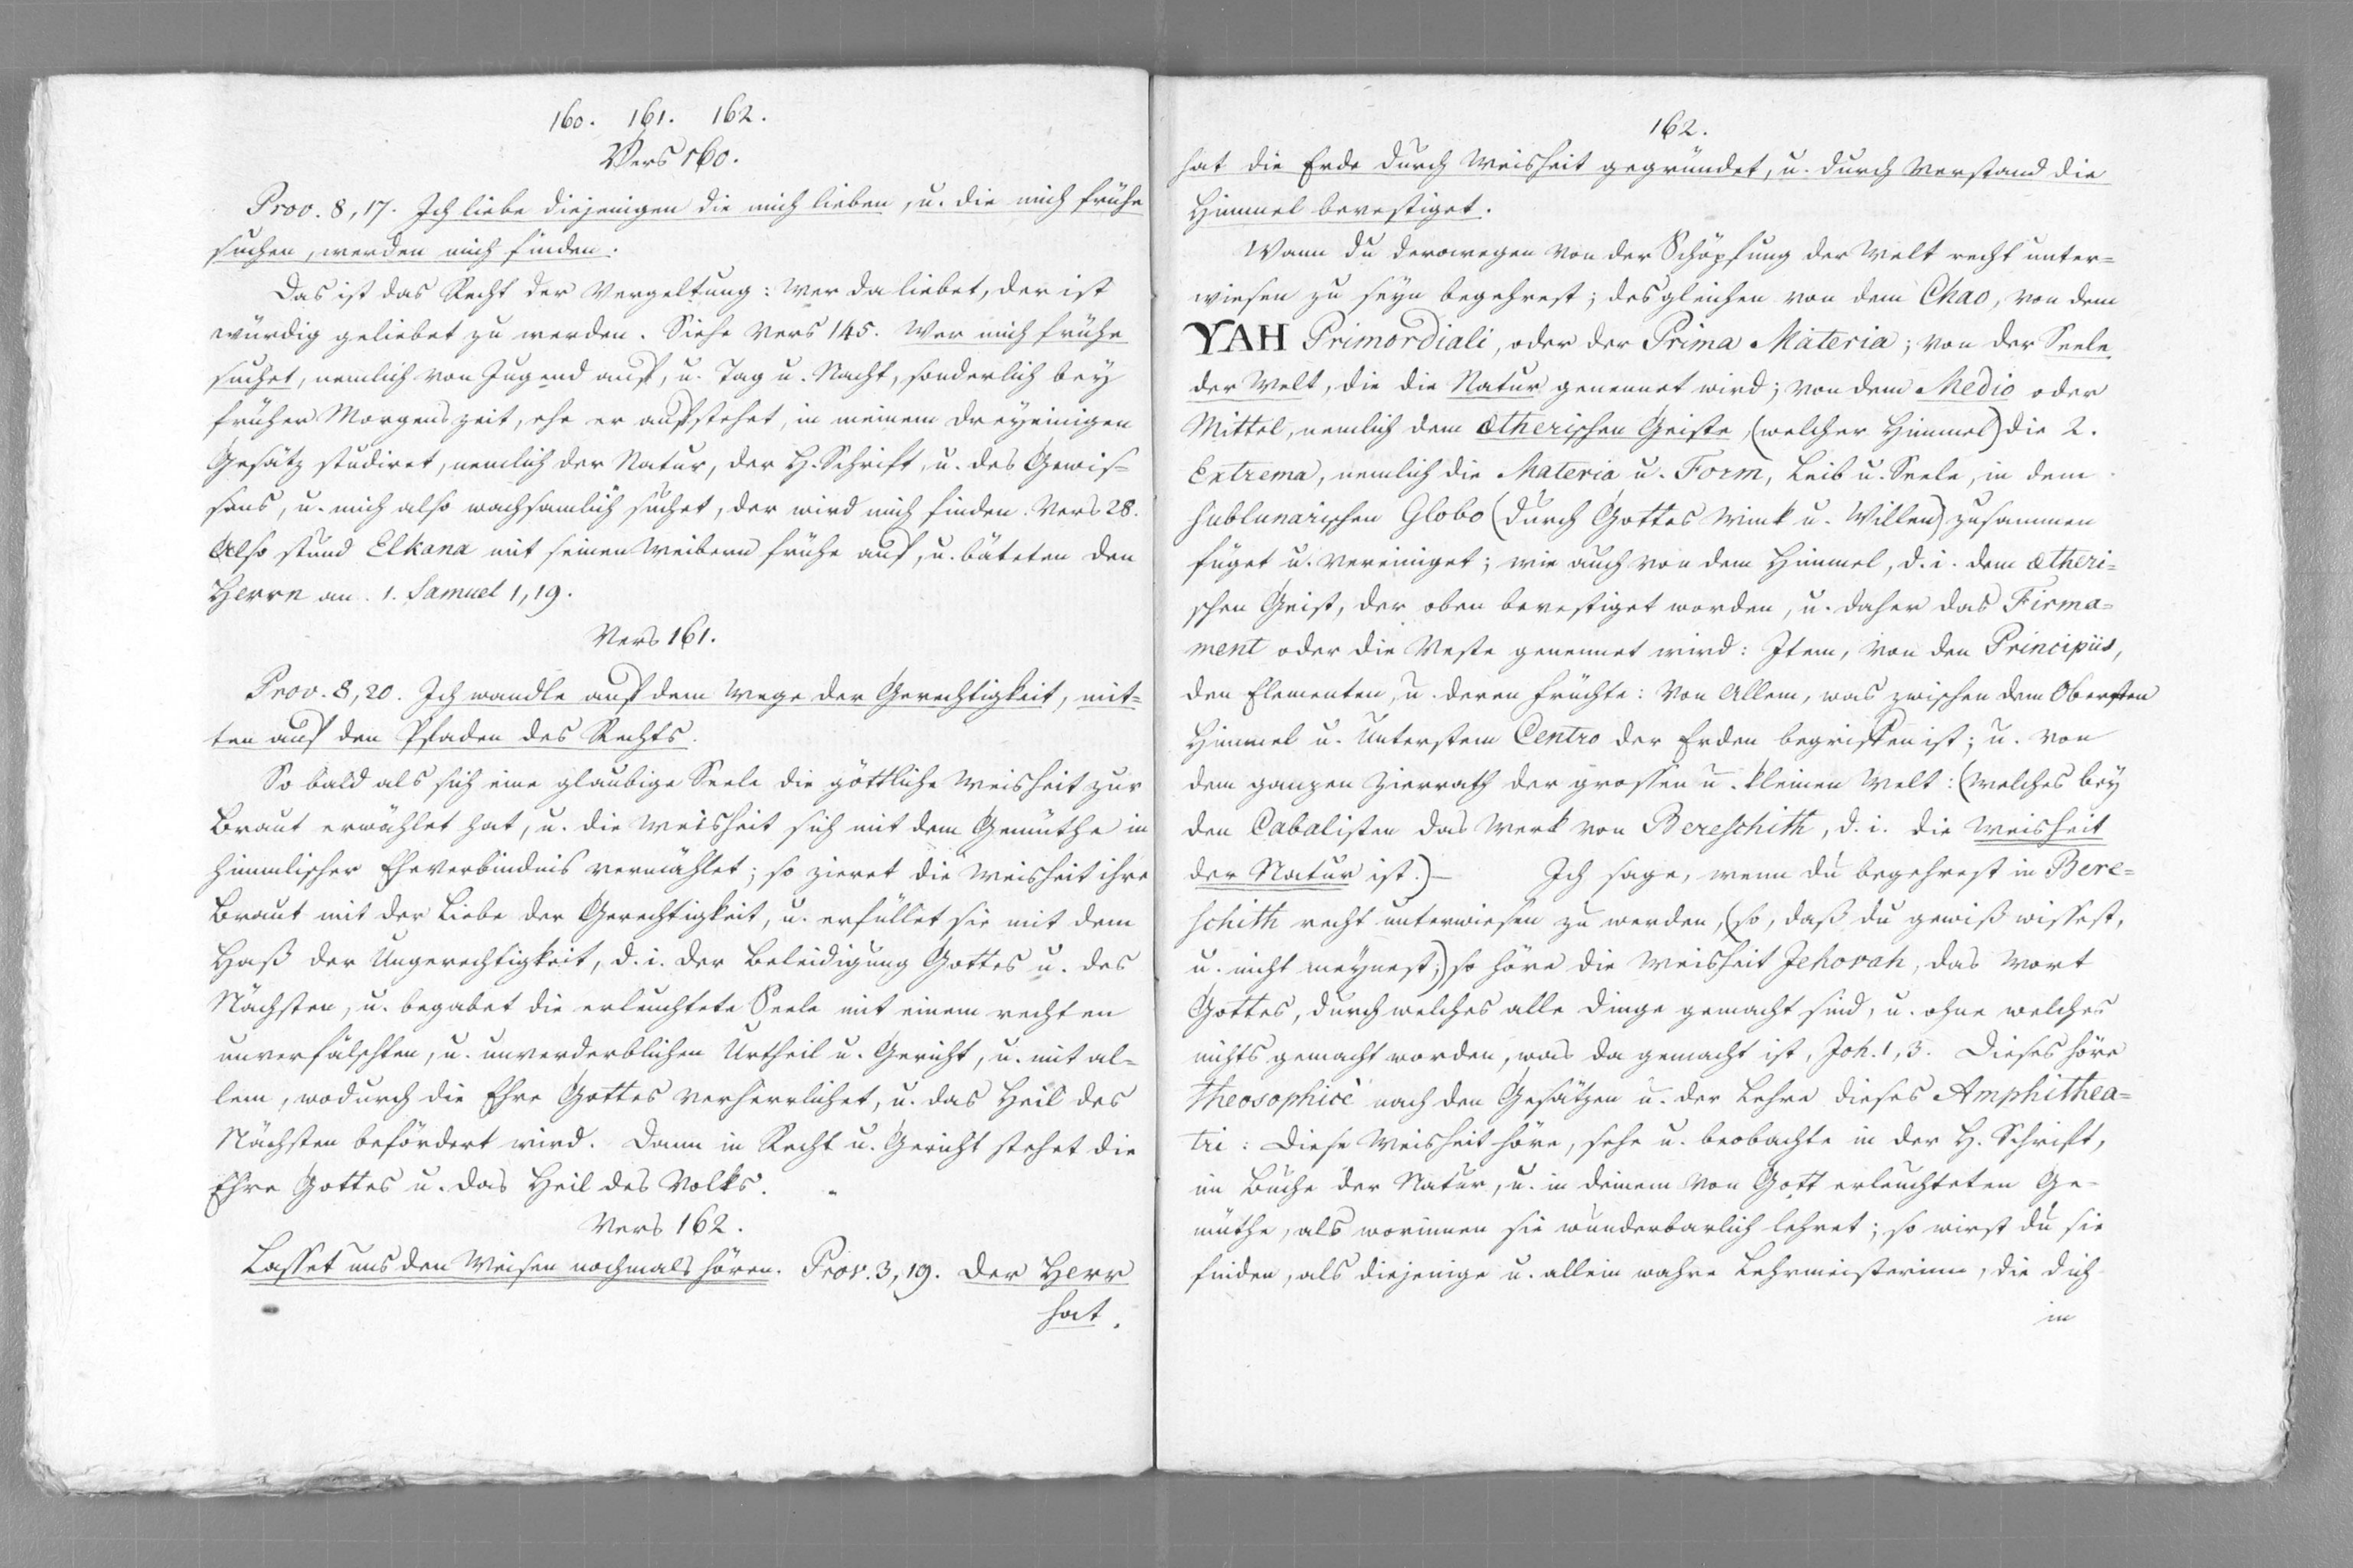 160. 161. 162.
Vers 160.
Prov. 8, 17. Ich liebe diejenigen die mich lieben, u. die mich frühe
suchen, werden mich finden.
Das ist das Recht der Vergeltung: wer da liebet, der ist
würdig geliebet zu werden. Siehe Vers 145. Wer mich frühe
suchet, nemlich von Jugend auf, u. Tag u. Nacht, sonderlich bey
früher Morgenszeit, ehe er aufstehet, in meinem dreyeinigen
Gesätz studiret, nemlich der Natur, der H. Schrift, u. des Gewis=
sens, u. mich also wachsamlich suchet, der wird mich finden. Vers 28.
Also stund Elkana mit seinen Weibern frühe auf, u. bäteten den
Herrn an. 1. Samuel 1, 19.
Vers 161.
Prov. 8, 20. Ich wandle auf dem Wege der Gerechtigkeit, mit=
ten auf den Pfaden des Rechts.
So bald als sich eine glaubige Seele die göttliche Weisheit zur
Braut erwählet hat, u. die Weisheit sich mit dem Gemüthe in
himmlischer Eheverbindnis vermählet; so zieret die Weisheit ihre
Braut mit der Liebe der Gerechtigkeit, u. erfüllet sie mit dem
Haß der Ungerechtigkeit, d. i. der Beleidigung Gottes u. des
Nächsten, u. begabet die erleuchtete Seele mit einem rechten
unverfälschten, u. unverderblichen Urtheil u. Gericht, u. mit al=
lem, wodurch die Ehre Gottes verherrlichet, u. das Heil des
Nächsten befördert wird. Dann in Recht u. Gericht stehet die
Ehre Gottes u. das Heil des Volks.
Vers 162.
Lasset uns den Weisen nochmals hören. Prov. 3, 19. Der Herr
hat
162.
hat die Erde durch Weisheit gegründet, u. durch Verstand die
Himmel bevestiget.
Wann du derowegen von der Schöpfung der Welt recht unter=
wiesen zu seyn begehrest; desgleichen von dem Chao, von dem
YAH Primordiali, oder der Prima Materia; von der Seele
der Welt, die die Natur genennet wird; von dem Medio oder
Mittel, nemlich dem ætherischen Geiste, (welcher Himmel) die 2.
Extrema, nemlich die Materia u. Form, Leib u. Seele, in dem
sublunarischen Globo (durch Gottes Wink u. Willen) zusammen
füget u. vereiniget; wie auch von dem Himmel, d. i. dem ætheri=
schen Geist, der oben bevestiget worden, u. daher das Firma=
ment oder die Veste genennet wird: Item, von den Principiis,
den Elementen, u. deren Früchte: Von Allem, was zwischen dem Obersten
Himmel u. Unterstem Centro der Erden begriffen ist; u. von
dem ganzen Zierrath der grossen u. kleinen Welt: (welches bey
den Cabalisten das Werk von Bereschith, d. i. die Weisheit
der Natur ist.) — Ich sage, wenn du begehrest in Bere=
schith recht unterwiesen zu werden, (so, daß du gewiß wissest,
u. nicht meynest;) so höre die Weisheit Jehovah, das Wort
Gottes, durch welches alle Dinge gemacht sind, u. ohne welches
nichts gemacht worden, was da gemacht ist, Joh. 1, 3. Dieses höre
theosophice nach den Gesätzen u. der Lehre dieses Amphithea=
tri: Diese Weisheit höre, sehe u. beobachte in der H. Schrift,
im Buche der Natur, u. in deinem von Gott erleuchteten Ge=
müthe, als worinnen sie wunderbarlich lehret; so wirst du sie
finden, als diejenige u. allein wahre Lehrmeisterinn, die dich
in